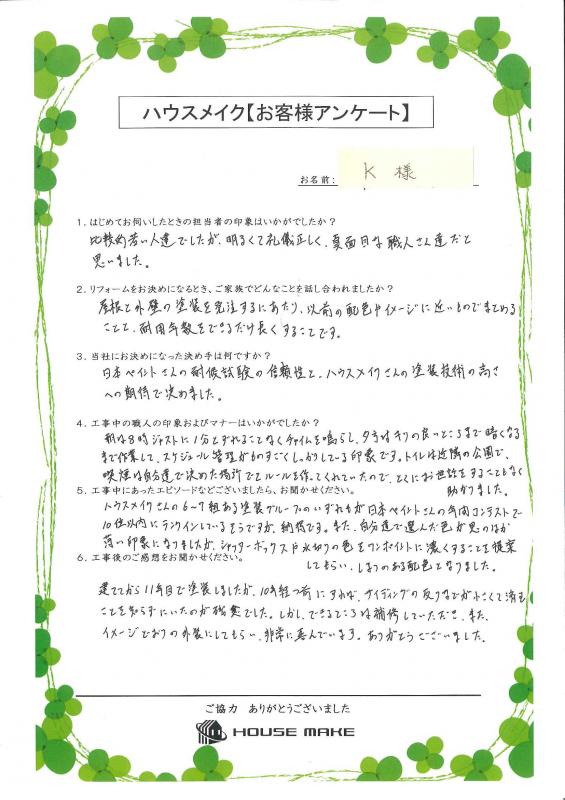 ハウスメイク【お客様アンケート】
お名前: K 様
1. はじめてお伺いしたときの担当者の印象はいかがでしたか？
比較的若い人達でしたが、明るくて礼儀正しく、真面目な職人さん達だと
思いました。
2. リフォームをお決めになるとき、ご家族でどんなことを話し合われましたか？
屋根と外壁の塗装を発注するにあたり、以前の配色やイメージに近いものでまとめる
ことと、耐用年数をできるだけ長くすることです。
3. 当社にお決めになった決め手は何ですか？
日本ペイントさんの耐候試験の信頼性と、ハウスメイクさんの塗装技術の高さ
への期待で決めました。
4. 工事中の職人の印象およびマナーはいかがでしたか？
朝は8時ジャストに1分とずれることなくチャイムを鳴らし、夕方はキリの良いところまで暗くなる
まで作業して、スケジュール管理がものすごくしっかりしている印象です。トイレは近隣の公園で、
喫煙は自分達で決めた場所でとルールを作ってくれていたので、とくにお世話をすることもなく
助かりました。
5. 工事中にあったエピソードなどございましたら、お聞かせください。
ハウスメイクさんの6〜7組ある塗装グループのいずれもが日本ペイントさんの年間コンテストで
10位以内にランクインしているそうですが、納得です。また、自分達で選んだ色が思のほか
薄い印象になりましたが、シャッターボックスや水切りの色をワンポイントに濃くすることを提案
してもらい、しまりのある配色となりました。
6. 工事後のご感想をお聞かせください。
建ててから11年目で塗装しましたが、10年経つ前にすれば、サイディングの反りなどが小さくて済む
ことを知らずにいたのが残念でした。しかし、できるところは補修していただき、また、
イメージどおりの外装にしてもらい、非常に喜んでいます。ありがとうございました。
ご協力 ありがとうございました
HOUSE MAKE